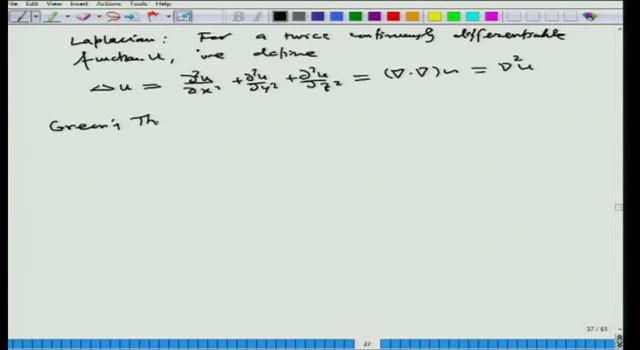 File Edit View Insert Actions Tools Help
Laplacian: For a twice continuously differentiable
function u, we define
Δu = ∂²u/∂x² + ∂²u/∂y² + ∂²u/∂z² = (∇·∇)u = ∇²u
Green's Th
37 / 61
37